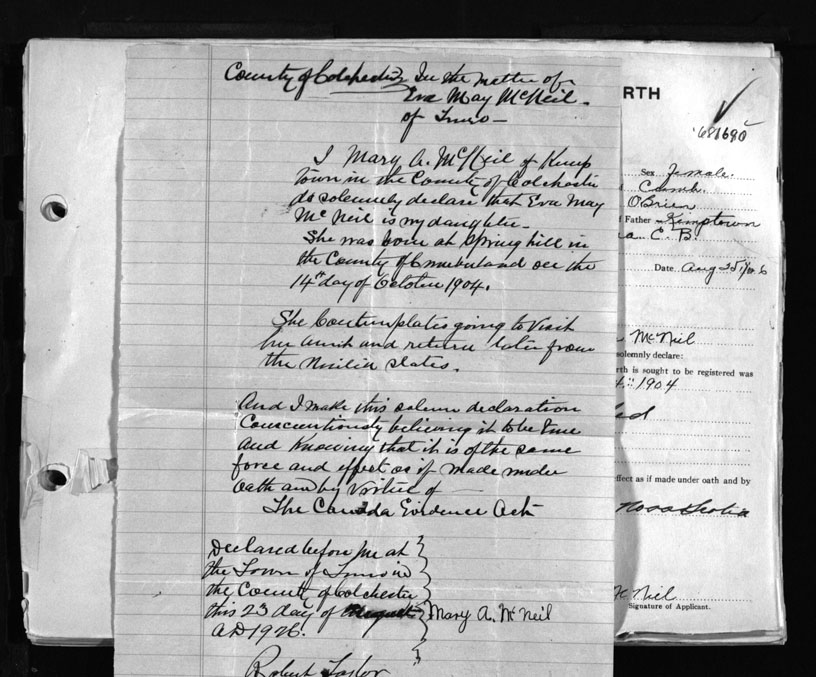 County of Colchester In the matter of
Eva May McNeil.
of Truro —
I Mary A. McNeil of Kemp
town in the County of Colchester
do solemnly declare that Eva May
McNeil is my daughter.
She was born at Springhill in
the County of Cumberland on the
14th day of October 1904.
She Contemplates going to visit
her aunt and return later from
the United States.
And I make this solemn declaration
Conscientiously believing it to be true
and Knowing that it is of the same
force and effect as if made under
oath and by Virtue of
The Canada Evidence Act
Declared before me at
the Town of Truro in
the County of Colchester
this 23 day of August
AD 1926.
Mary A. McNeil
Robert Taylor
RTH
681690
Sex female.
Cumb.
OBrien
Father Kemptown
C. B.
Date Aug 25 1926
McNeil
solemnly declare:
rth is sought to be registered was
1904
ffect as if made under oath and by
Nova Scotia
McNeil
Signature of Applicant.